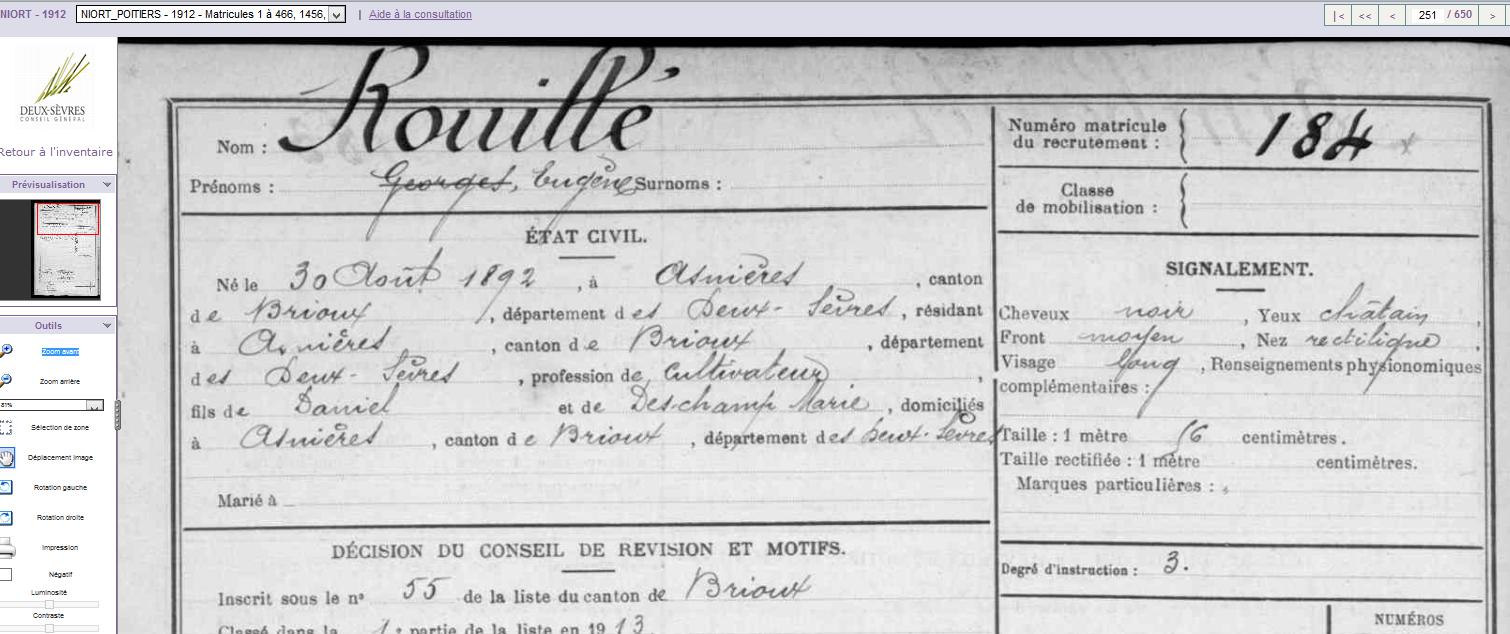 NIORT - 1912
NIORT_POITIERS - 1912 - Matricules 1 à 466, 1456,
| Aide à la consultation
|< << < 251 / 650 >
DEUX-SÈVRES
CONSEIL GÉNÉRAL
Retour à l'inventaire
Prévisualisation
Outils
Zoom avant
Zoom arrière
81%
Sélection de zone
Déplacement image
Rotation gauche
Rotation droite
Impression
Négatif
Luminosité
Contraste
Nom : Rouillé
Prénoms : Georges, Eugène Surnoms :
ÉTAT CIVIL.
Né le 30 Août 1892, à Asnières, canton
de Brioux, département des Deux-Sèvres, résidant
à Asnières, canton de Brioux, département
des Deux-Sèvres, profession de Cultivateur,
fils de Daniel et de Deschamp Marie, domiciliés
à Asnières, canton de Brioux, département des Deux-Sèvres
Marié à
DÉCISION DU CONSEIL DE REVISION ET MOTIFS.
Inscrit sous le nº 55 de la liste du canton de Brioux
Classé dans la 1e partie de la liste en 1913.
Numéro matricule
du recrutement : 184
Classe
de mobilisation :
SIGNALEMENT.
Cheveux noir, Yeux châtain,
Front moyen, Nez rectiligne,
Visage long, Renseignements physionomiques
complémentaires :
Taille : 1 mètre 56 centimètres.
Taille rectifiée : 1 mètre centimètres.
Marques particulières :
Degré d'instruction : 3.
NUMÉROS